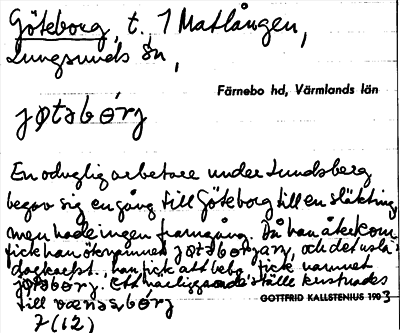 Göteborg, t. 1 Matlången,
Lungsunds sn,
Färnebo hd, Värmlands län
jøtəbórj
En oduglig arbetare under Lundsberg
begav sig en gång till Göteborg till en släkting,
men hade ingen framgång. Då han återkom
fick han öknamnet jøtəbórjarn, och det usla
dagkarlst., han fick att bebo, fick namnet
jøtəbórj. Ett närliggande ställe kristnades
till vænəʂbórj
GOTTFRID KALLSTENIUS 1903
7 (12)